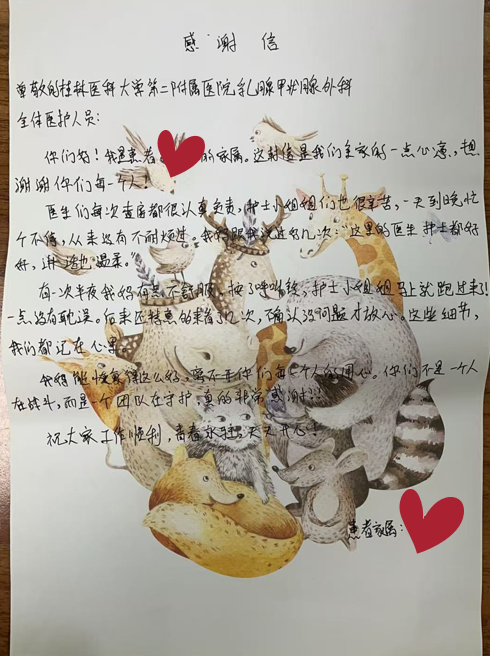 感谢信
尊敬的桂林医科大学第二附属医院乳腺甲状腺外科
全体医护人员：
你们好！我是患者 的家属。这封信是我们全家的一点心意，想
谢谢你们每一个人！
医生们每次查房都很认真负责，护士小姐姐们也很辛苦，一天到晚忙
个不停，从来没有不耐烦过。我妈跟我说过好几次：“这里的医生护士都好
好，讲话也温柔。
有一次半夜我妈有点不舒服，按了呼叫铃，护士小姐姐马上就跑过来了！
一点没有耽误。后来还特意的来看了几次，确认没问题才放心。这些细节，
我们都记在心里。
我妈能恢复得这么好，离不开你们每一个人的用心。你们不是一个人
在战斗，而是一个团队在守护，真的非常感谢!!!
祝大家工作顺利，青春永驻，天天开心！
患者家属：